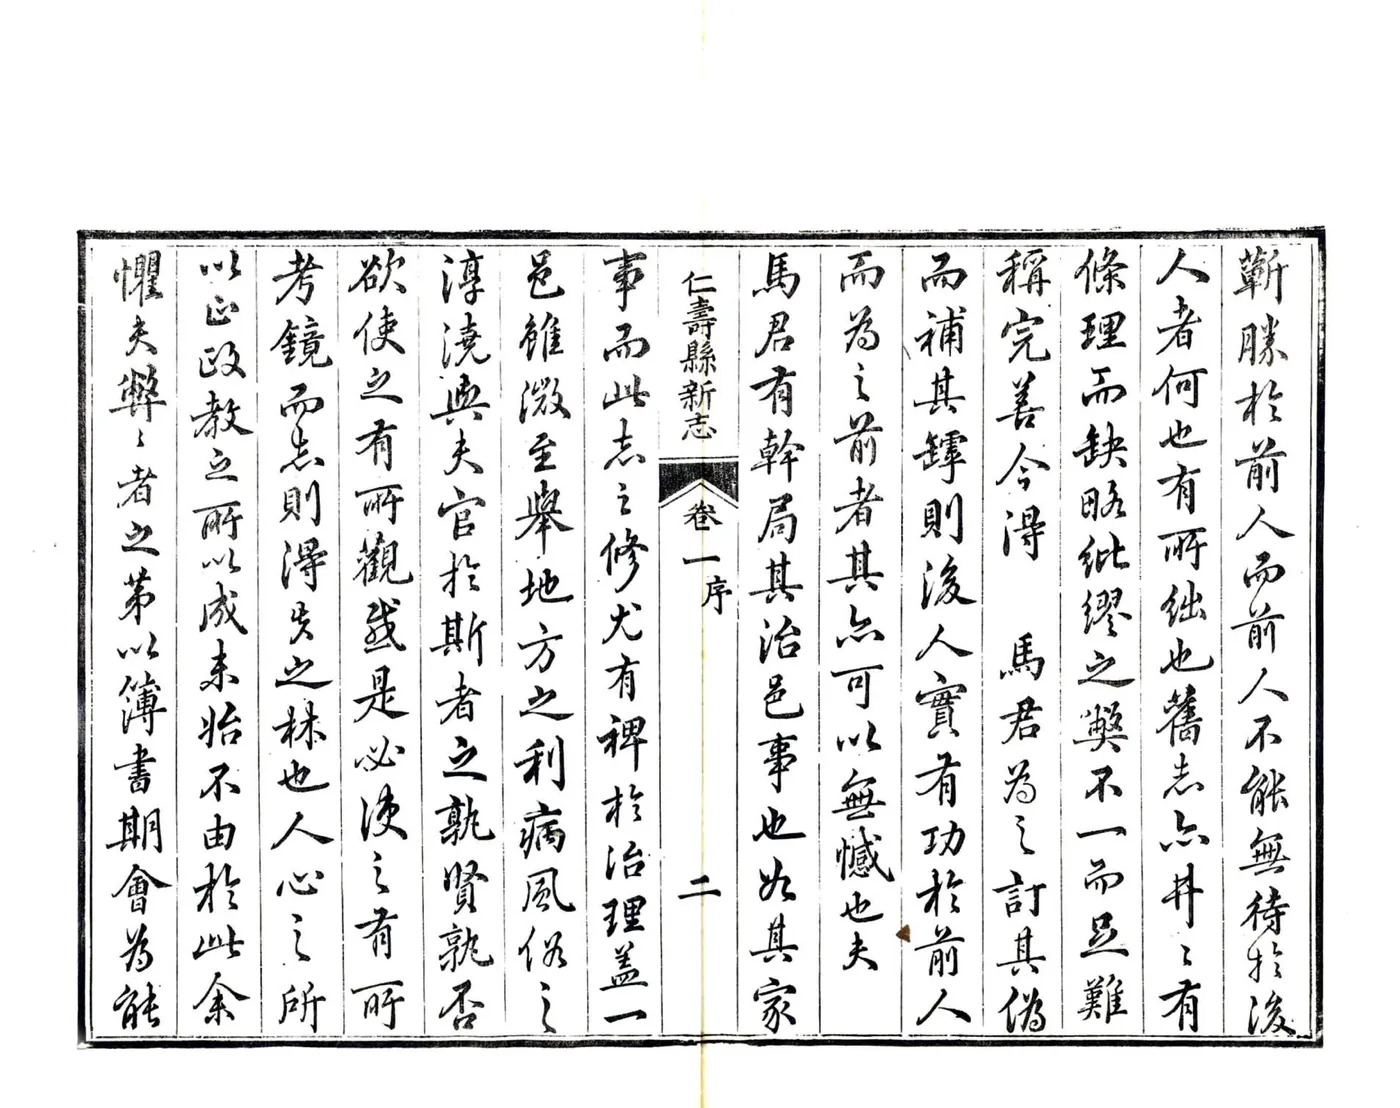 蘄勝於前人而前人不能無待於後
人者何也有所絀也舊志亦井〻有
條理而缺略紕繆之獘不一而足難
稱完善今得　馬君為之訂其偽
而補其罅則後人實有功於前人
而為之前者其亦可以無憾也夫
馬君有幹局其治邑事也如其家
仁壽縣新志
卷一
序
二
事而此志之修尤有裨於治理蓋一
邑雖微至舉地方之利病風俗之
淳澆與夫官於斯者之孰賢孰否
欲使之有所觀感是必使之有所
考鏡而志則得失之林也人心之所
以正政教之所以成未始不由於此余
懼夫弊〻者之第以簿書期會為能